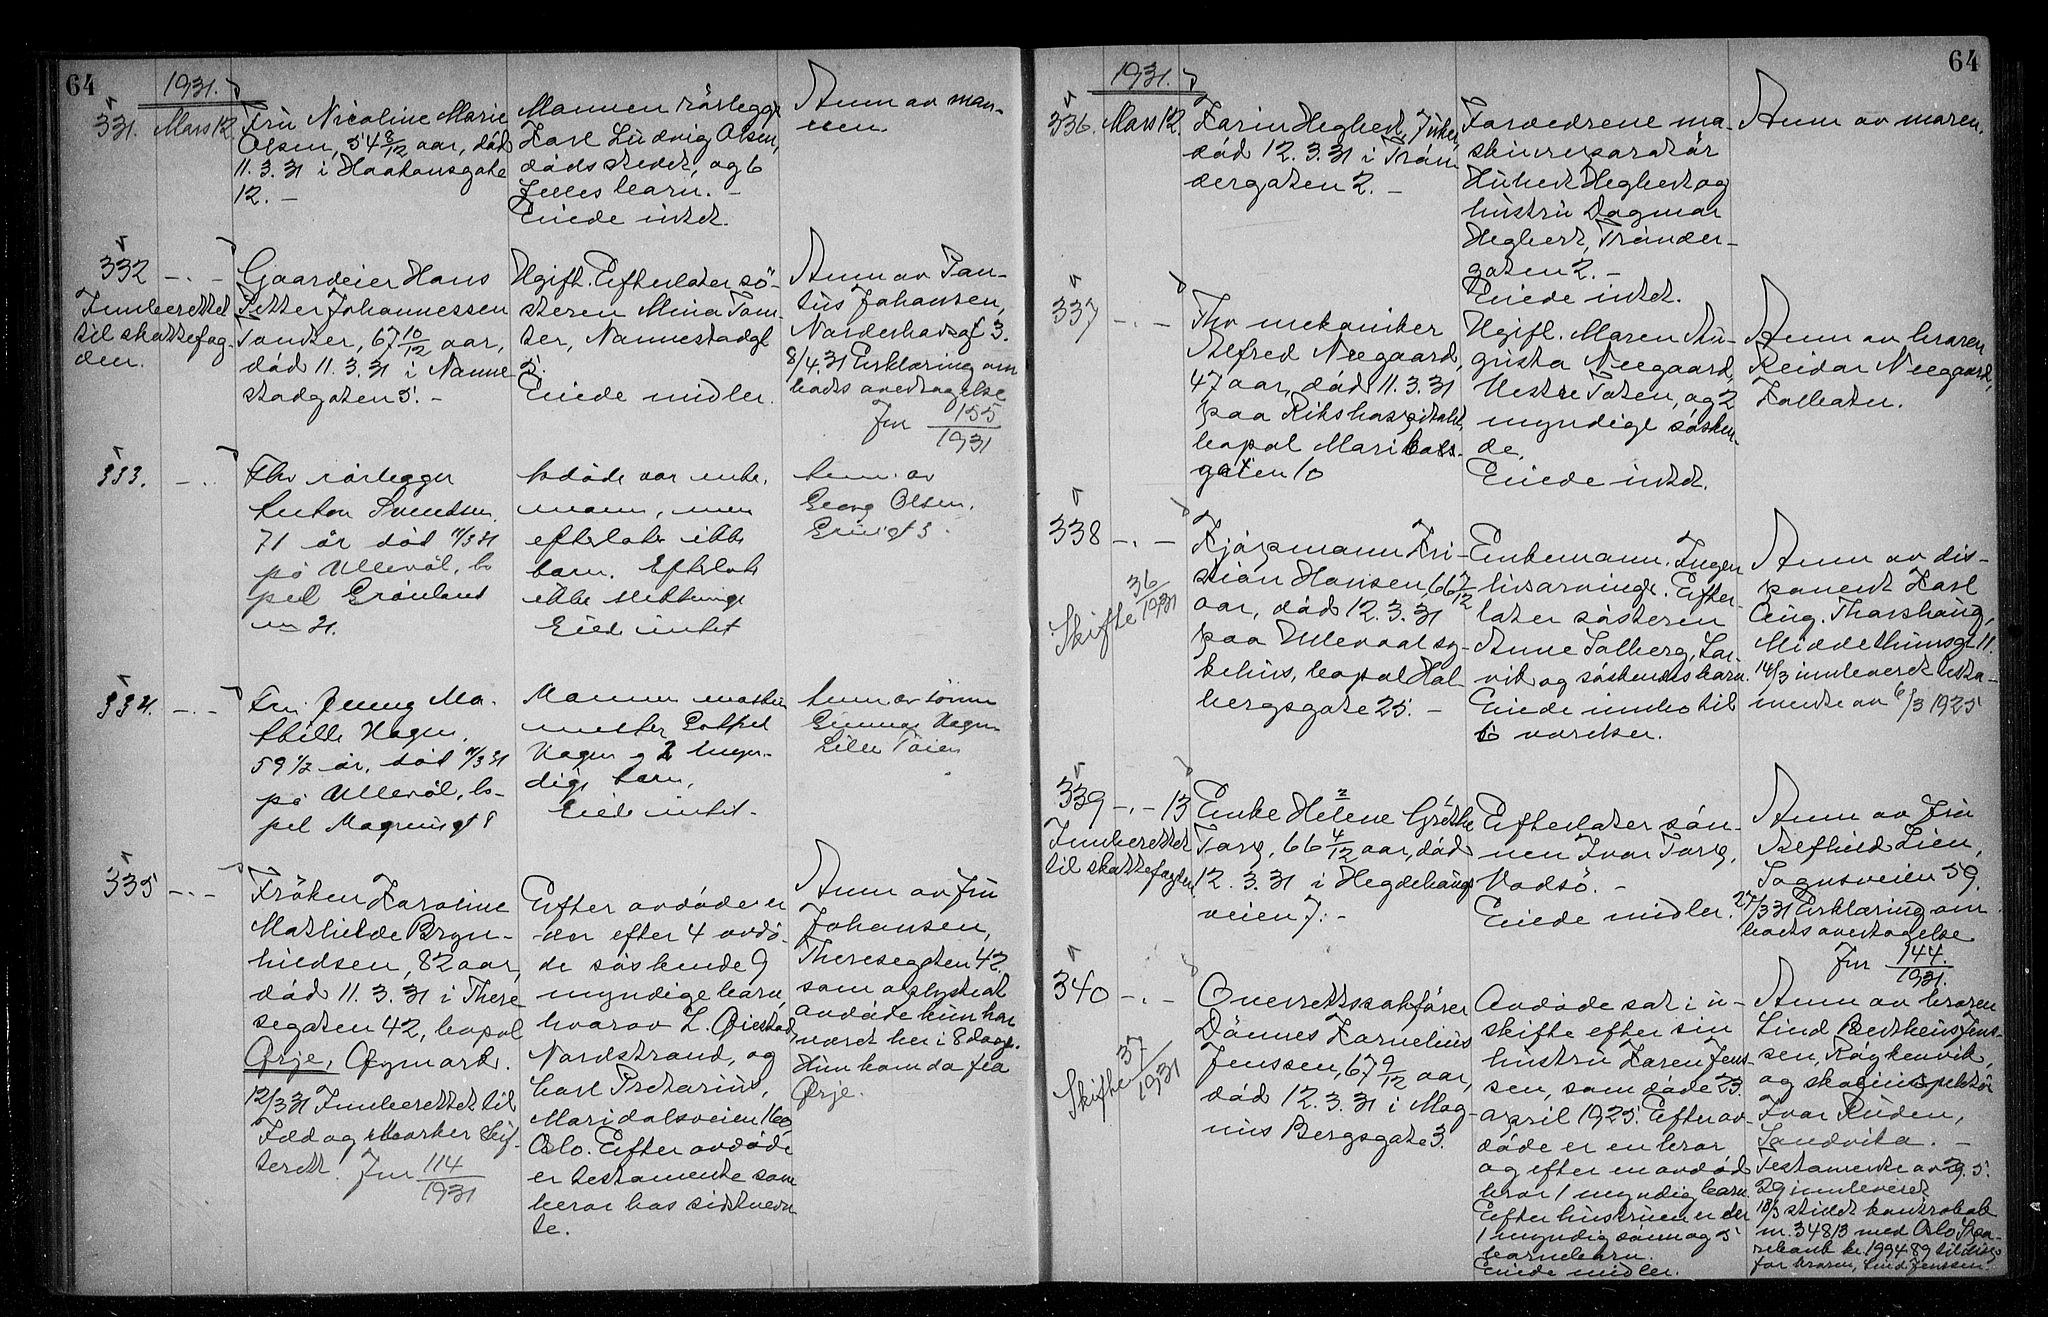 64
1931.
331. Mars 12.
Fru Nicoline Marie
Olsen, 54 8/12 aar, død
11.3.31 i Haakonsgate
12. –
Mannen rørlegger
Karl Ludvig Olsen,
dødsstedet, og 6
felles barn. –
Eiede intet.
Anm av man-
nen.
332 –.–
Innberettet
til skattefog-
den.
Gaardeier Hans
Petter Johannessen
Tonter, 67 10/12 aar,
død 11.3.31 i Nanne-
stadgaten 5. –
Ugift. Efterlater sø-
steren Mina Ton-
ter, Nannestadgt
5.
Eiede midler.
Anm av
Johansen,
Norderhovsgt 3.
8/4.31 Erklæring om
boets overtagelse
Jnr 155/1931
333. –.–
Fhv rørlegger
Anton Svendsen
71 år død 11/3 31
på Ullevål, bo-
pel Grønland
nr 21.
Avdøde var enke-
mann, men
efterlater ikke
barn. Efterlot
ikke slektninge
Eiede intet
Anm. av
Georg Olsen,
334. –.–
Fru Jenny Ma-
thilde Hagen,
59 1/2 år, død 11/3 31
på Ullevål, bo-
pel
Mannen
mester
Hagen og 2 umyn-
dige barn,
Eiede intet.
Anm av sønnen
Gunnar Hagen
Lille Tøien
335 –.–
Frøken Karoline
Mathilde Bryn-
hildsen, 82 aar,
død 11.3.31 i There-
segaten 42, bopæl
Ørje, Øymark.
12/3 31 Innberettet til
Idd og Marker skif-
terett. Jnr 114/1931
Efter avdøde er
der efter 4 avdø-
de søskende 9
myndige barn,
hvorav L. Øiestad,
Nordstrand, og
Karl Pretorius,
Maridalsveien 160,
Oslo. Efter avdøde
er testamente som
beror hos sidstnevn-
te.
Anm av Fru
Johansen,
Theresegaten 42.
som oplyste at
avdøde kun har
været her i 8 dage.
Hun kom da fra
Ørje.
64
1931.
336. Mars 12.
Karin Hegbert,
død 12.3.31 i Trøn-
dergaten 2. –
Forældrene ma-
skinreparatør
Hubert Hegbert og
hustru Dagmar
Hegbert, Trønder-
gaten 2. –
Eiede intet.
Anm av moren.
337 –.–
Fhv mekaniker
Alfred Neegaard,
47 aar, død 11.3.31
paa Rikshospitalet,
bopæl Mariboes-
gaten 10
Ugift. Moren Au-
gusta Neegaard,
Vestre Toten, og 2
myndige søsken-
de.
Eiede intet.
Anm av broren
Reidar Neegaard,
Kolbotn.
338 –.–
Skifte 36/1931
Kjøpmann Kri-
stian Hansen, 66 7/12
aar, død 12.3.31
paa Ullevaal sy-
kehus, bopæl Hol-
bergsgate 25. –
Enkemann. Ingen
livsarvinge. Efter-
later søsteren
Anne Solberg, Lar-
vik og søskendesbarn.
Eiede innbo til
6 værelser.
Anm av dis-
ponent Karl
Aug. Thorshaug,
Middelthunsgt 11.
14/3 innleveret testa-
mente av 6/3 1925
339 –.– 13
Innberettet
til skattefogden
Enke Helene Grethe
Torg, 66 4/12 aar, død
12.3.31 i Hegdehaugs-
veien 7. –
Efterlater søn-
nen Ivar Torg,
Vadsø. –
Eiede midler.
Anm av Fru
Alfhild Lien,
Sognsveien 59.
27/3 31 Erklæring om
boets overtagelse
Jnr 144./1931.
340 –.–
Skifte 37/1931
Overrettssakfører
Dønnes Kornelius
Jenssen, 67 9/12 aar,
død 12.3.31 i Mag-
nus Bergsgate 3.
Avdøde sat i u-
skifte efter sin
hustru Karen Jens-
sen, som døde 23.
april 1925. Efter av-
døde er en bror
og efter en avdød
bror 1 myndig barn.
Efter hustruen er der
1 myndig sønn og 5
barnebarn.
Eiede midler.
Anm av broren
Lind Bertheus Jens-
sen, Røykenvik,
og skoginspektør
Ivar Ruden,
Sandvika. –
Testamente av 29.5.
29 innleveret
18/3 stilet kontrabok
nr. 34813 med Oslo Spa-
rebank kr. 1994.89
for broren, Lind Jenssen.